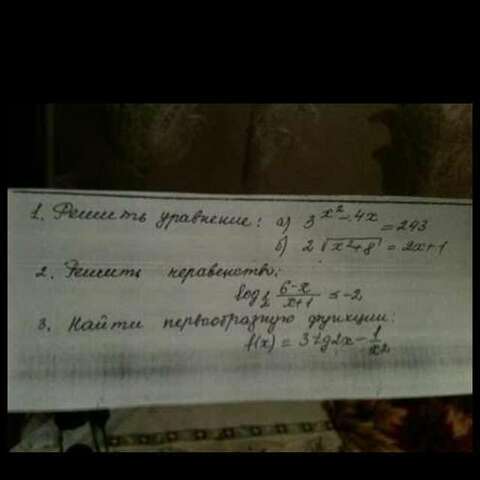 1. Решить уравнение: а) 3^(x²-4x) = 243
б) 2√(x²+8) = 2x+1
2. Решить неравенство:
log_(1/2) (6-x)/(x+1) ≤ -2
3. Найти первообразную функции:
f(x) = 3tg2x - 1/x²